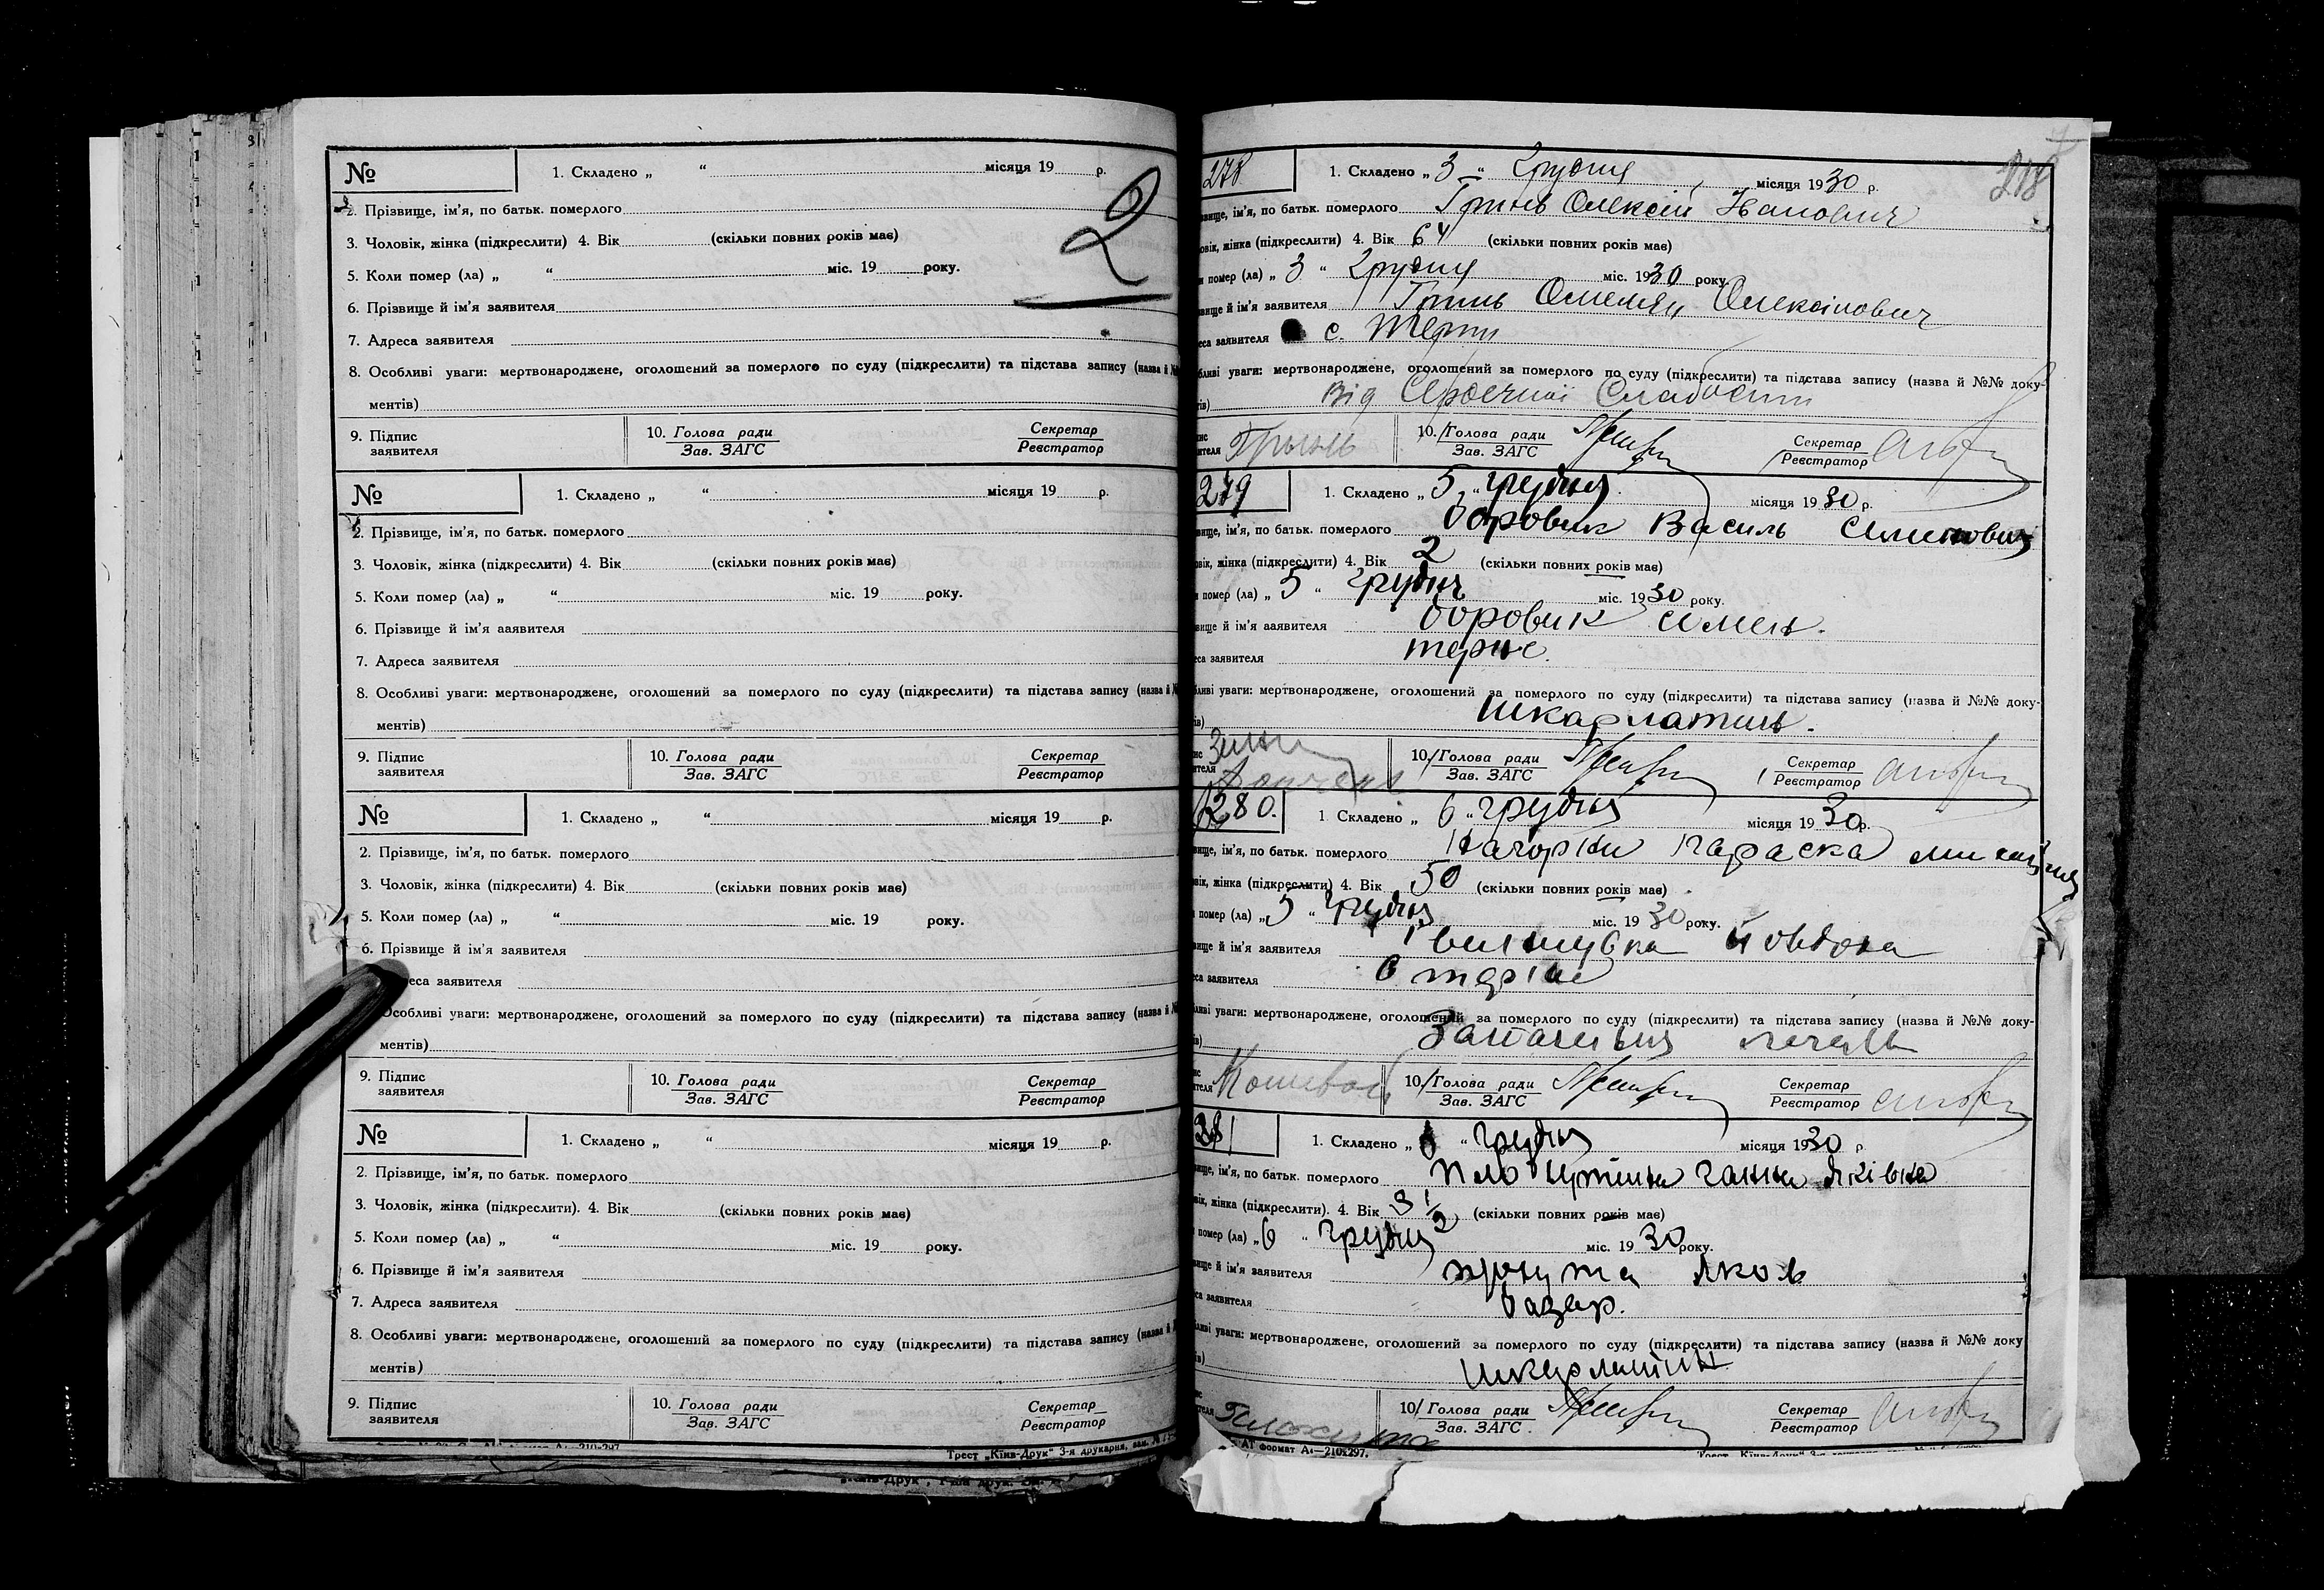 № 1. Складено „ “ місяця 19 р.
2. Прізвище, ім'я, по батьк. померлого
3. Чоловік, жінка (підкреслити) 4. Вік (скільки повних років має)
5. Коли помер (ла) „ “ міс. 19 року.
6. Прізвище й ім'я заявителя
7. Адреса заявителя
8. Особливі уваги: мертвонароджене, оголошений за померлого по суду (підкреслити) та підстава запису (назва й №
ментів)
9. Підпис заявителя 10. Голова ради Зав. ЗАГС Секретар Реєстратор
2
№ 1. Складено „ “ місяця 19 р.
2. Прізвище, ім'я, по батьк. померлого
3. Чоловік, жінка (підкреслити) 4. Вік (скільки повних років має)
5. Коли помер (ла) „ “ міс. 19 року.
6. Прізвище й ім'я ааявителя
7. Адреса заявителя
8. Особливі уваги: мертвонароджене, оголошений за померлого по суду (підкреслити) та підстава запису (назва й №
ментів)
9. Підпис заявителя 10. Голова ради Зав. ЗАГС Секретар Реєстратор
№ 1. Складено „ “ місяця 19 р.
2. Прізвище, ім'я, по батьк. померлого
3. Чоловік, жінка (підкреслити) 4. Вік (скільки повних років має)
5. Коли помер (ла) „ “ міс. 19 року.
6. Прізвище й ім'я заявителя
еса заявителя
Особливі уваги: мертвонароджене, оголошений за померлого по суду (підкреслити) та підстава запису (назва й №
ментів)
9. Підпис заявителя 10. Голова ради Зав. ЗАГС Секретар Реєстратор
№ 1. Складено „ “ місяця 19 р.
2. Прізвище, ім'я, по батьк. померлого
3. Чоловік, жінка (підкреслити). 4. Вік (скільки повних років має)
5. Коли помер (ла) „ “ міс. 19 року.
6. Прізвище й ім'я заявителя
7. Адреса заявителя
8. Особливі уваги: мертвонароджене, оголошений за померлого по суду (підкреслити) та підстава запису (назва й
ментів)
9. Підпис заявителя 10. Голова ради Зав. ЗАГС Секретар Реєстратор
Трест „Київ-Друк“ 3-я друкарня, зам. №
218
278 1. Складено „3“ Грудня місяця 1930 р.
вище, ім'я, по батьк. померлого Гринь Олексій Іванович
овік, жінка (підкреслити) 4. Вік 64 (скільки повних років має)
помер (ла) „3“ Грудня міс. 1930 року
вище й ім'я заявителя Гринь Омелян Олексійович
еса заявителя с. Терни
бливі уваги: мертвонароджене, оголошений за померлого по суду (підкреслити) та підстава запису (назва й №№ доку-
тів) від Сердечної Слабости
10. Голова ради Зав. ЗАГС Секретар Реєстратор
Грынь
279 1. Складено „5“ грудня місяця 1930 р.
вище, ім'я, по батьк. померлого боровик Василь Семенович
овік, жінка (підкреслити) 4. Вік 2 (скільки повних років має)
помер (ла) „5“ грудня міс. 1930 року.
вище й ім'я ааявителя боровик семен.
еса заявителя терне.
бливі уваги: мертвонароджене, оголошений за померлого по суду (підкреслити) та підстава запису (назва й №№ доку-
ів) шкарлатина.
10. Голова ради Зав. ЗАГС Секретар Реєстратор
280. 1. Складено „6“ грудня місяця 1930 р.
вище, ім'я, по батьк. померлого параска
вік, жінка (підкреслити) 4. Вік 50 (скільки повних років має)
помер (ла) „5“ грудня міс. 1930 року.
вище й ім'я заявителя
еса заявителя с терни
ливі уваги: мертвонароджене, оголошений за померлого по суду (підкреслити) та підстава запису (назва й №№ доку-
ів) Запаленья
10. Голова ради Зав. ЗАГС Секретар Реєстратор
Кошевой
281 1. Складено „6“ грудня місяця 1930 р
вище, ім'я, по батьк. померлого ганна Яківна
вік, жінка (підкреслити). 4. Вік 3 1/2 (скільки повних років має)
помер (ла) „6“ грудня міс. 1930 року.
вище й ім'я заявителя Яков
са заявителя базар.
ливі уваги: мертвонароджене, оголошений за померлого по суду (підкреслити) та підстава запису (назва й №№ доку
ів) шкарлатина
10. Голова ради Зав. ЗАГС. Секретар Реєстратор
АТ формат А4—210х297.